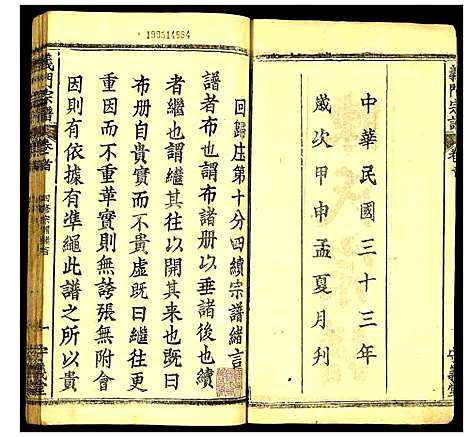 義門宗譜
卷首
中華民國三十三年
歲次甲申孟夏月刋
守義堂
199514984
回歸庄第十分四續宗譜緒言
譜者布也謂布諸册以垂諸後也續
者繼也謂繼其往以開其來也既曰
布册自貴實而不貴虛既曰繼往更
重因而不重革實則無誇張無附會
因則有依據有準繩此譜之所以貴
義門宗譜
卷首
一
守義堂